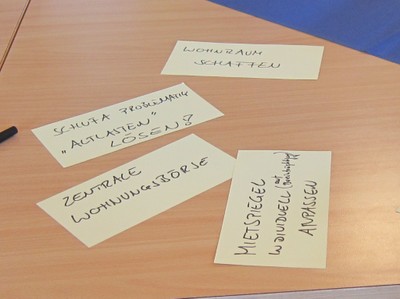 WOHNRAUM
SCHAFFEN
SCHUFA PROBLEMATIK
„ALTLASTEN"
LÖSEN?
ZENTRALE
WOHNUNGSBÖRSE
MIETSPIEGEL
INDIVIDUELL (auf
ANPASSEN